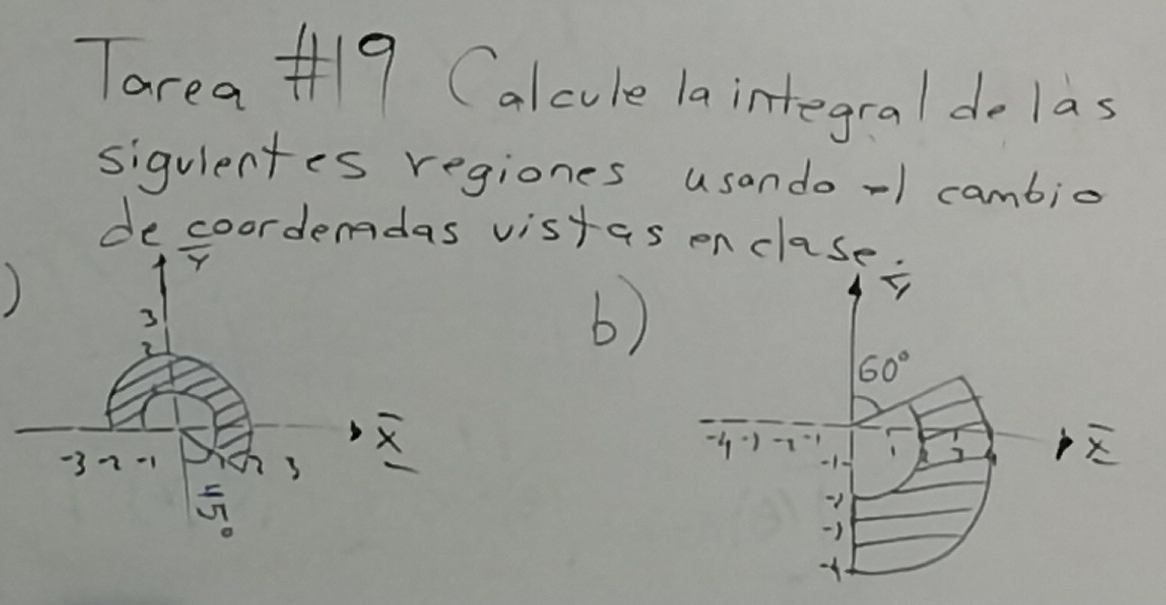 Tarea #19 Calcule la integral de las
siguientes regiones usando el cambio
de coordenadas vistas en clase.
) Y b) Y
3
2
60°
X X
-3 -2 -1 1 2 3
-4 -3 -2 -1 1 2 3
-1
-2
-3
-4
45°